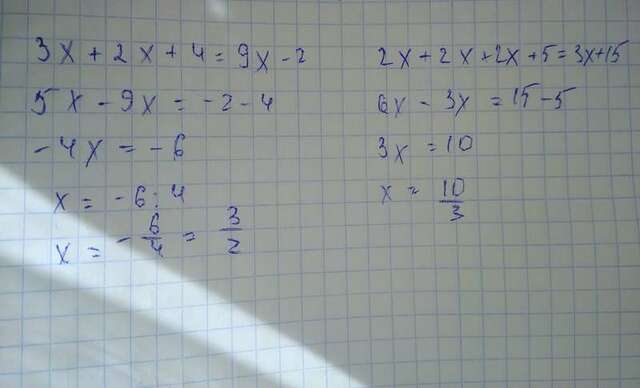 3x + 2x + 4 = 9x - 2
5x - 9x = -2 - 4
-4x = -6
x = -6 : 4
x = - 6/4 = 3/2
2x + 2x + 2x + 5 = 3x + 15
6x - 3x = 15 - 5
3x = 10
x = 10/3